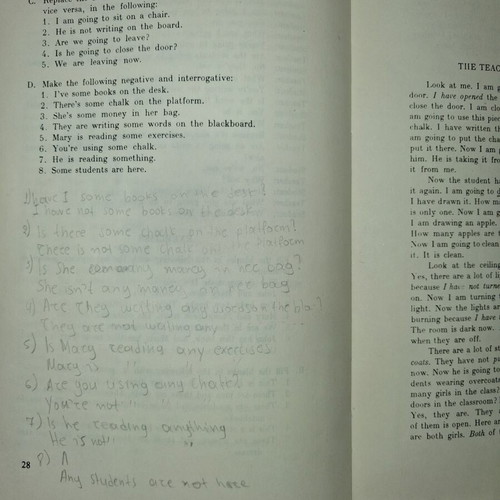 C. Replace
vice versa, in the following:
1. I am going to sit on a chair.
2. He is not writing on the board.
3. Are we going to leave?
4. Is he going to close the door?
5. We are leaving now.
D. Make the following negative and interrogative:
1. I've some books on the desk.
2. There's some chalk on the platform.
3. She's some money in her bag.
4. They are writing some words on the blackboard.
5. Mary is reading some exercises.
6. You're using some chalk.
7. He is reading something.
8. Some students are here.
1) Have I some books on the desk?
I have not some books on the desk
2) Is there some chalk on the platform?
There is not some chalk on
platform
3) Is she any money her bag?
She isn't any money her bag
4) Are They writing any words on the bla
They are not writing any
5) Is Mary reading any exercises
Mary is
6) Are you using any
You're not
7) Is he reading anything
He is not
8) A
Any students are not here
28
THE TEAC
Look at me. I am g
door. I have opened the
close the door. I am clo
am going to use this piec
chalk. I have written th
am going to put the cha
put it there. Now I am
him. He is taking it fro
it from me.
Now the student h
it again. I am going to d
I have drawn it. How m
is only one. Now I am g
I am drawing an apple.
How many apples are t
Now I am going to clean
it. It is clean.
Look at the ceiling
Yes, there are a lot of li
because I have not turne
on. Now I am turning
light. Now the lights ar
burning because I have
The room is dark now.
when they are off.
There are a lot of st
coats. They have not pu
now. Now he is going to
dents wearing overcoats
many girls in the class?
doors in the classroom?
Yes, they are. They
of them is open. Here ar
are both girls. Both of